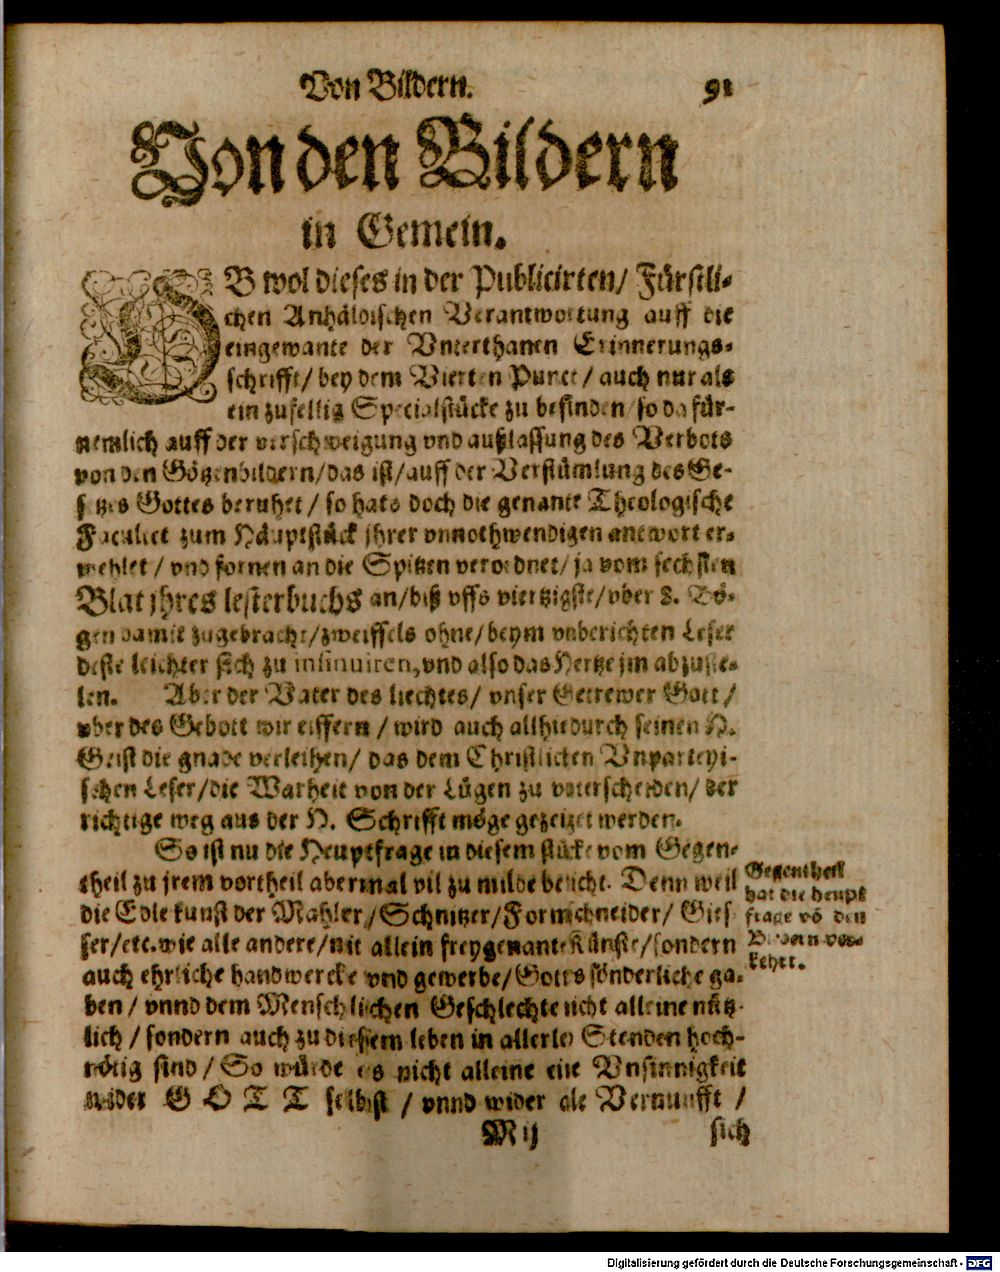 Von Bildern. 91
Von den Bildern
in Gemein.
OB wol dieses in der Publicirten/ Fürstli-
chen Anhäldischen Verantwortung auff die
eingewante der Vnterthanen Erinnerungs-
schrifft/ bey dem Vierten Punct/ auch nur als
ein zufellig Specialstücke zu befinden/ so da für-
nemlich auff der verschweigung vnd außlassung des Verbots
von den Götzenbildern/ das ist/ auff der Verstümlung des Ge-
setzes Gottes beruhet/ so hats doch die genante Theologische
Facultet zum Häuptstück jhrer vnnothwendigen antwort er-
wehlet/ vnd fornen an die Spitzen verordnet/ ja vom sechsten
Blat jhres lesterbuchs an/ biß vffs viertzigste/ vber 8. Bö-
gen damit zugebracht/ zweiffels ohne/ beym vnberichten Leser
deste leichter sich zu insinuiren, vnd also das Hertze jm abzuste-
len. Aber der Vater des liechtes/ vnser Getrewer Gott/
vber des Gebott wir eiffern/ wird auch allhie durch seinen H.
Geist die gnade verleihen/ das dem Christlichen Vnparteyi-
schen Leser/ die Warheit von der Lügen zu vnterscheiden/ der
richtige weg aus der H. Schrifft möge gezeiget werden.
So ist nu die Heuptfrage in diesem stücke vom Gegen-
theil zu jrem vortheil abermal vil zu milde bericht. Denn weil
die Edle kunst der Mahler/ Schnitzer/ Formschneider/ Gies
ser/ etc. wie alle andere/ nit allein freygenante Künste/ sondern
auch ehrliche handwercke vnd gewerbe/ Gotts sönderliche ga-
ben/ vnnd dem Menschlichen Geschlechte nicht alleine nütz-
lich/ sondern auch zu diesem leben in allerley Stenden hoch-
nötig sind/ So würde es nicht alleine eine Vnsinnigkeit
wider GOTT selbst/ vnnd wider alle Vernunfft/
Gegentheil
hat die heupt
frage vō den
Bildern ver-
kehrt.
M ij sich
Digitalisierung gefördert durch die Deutsche Forschungsgemeinschaft - DFG